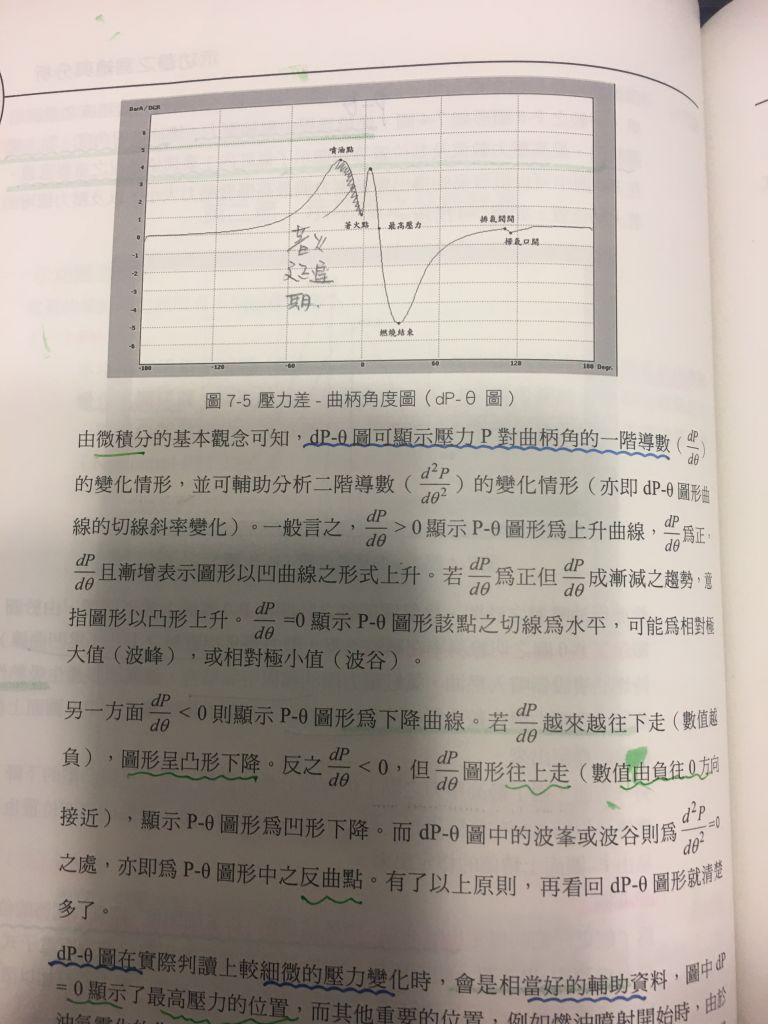 BarA/DGR
6
5
4
3
2
1
0
-1
-2
-3
-4
-5
-6
噴油點
著火點
最高壓力
排氣閥開
掃氣口開
燃燒結束
著火
延遲
期.
-180 -120 -60 0 60 120 180 Degr.
圖 7-5 壓力差 - 曲柄角度圖（dP-θ 圖）
由微積分的基本觀念可知，dP-θ 圖可顯示壓力 P 對曲柄角的一階導數（dP/dθ）
的變化情形，並可輔助分析二階導數（d²P/dθ²）的變化情形（亦即 dP-θ 圖形曲
線的切線斜率變化）。一般言之，dP/dθ > 0 顯示 P-θ 圖形為上升曲線，dP/dθ 為正，
dP/dθ 且漸增表示圖形以凹曲線之形式上升。若 dP/dθ 為正但 dP/dθ 成漸減之趨勢，意
指圖形以凸形上升。dP/dθ =0 顯示 P-θ 圖形該點之切線為水平，可能為相對極
大值（波峰），或相對極小值（波谷）。
另一方面 dP/dθ < 0 則顯示 P-θ 圖形為下降曲線。若 dP/dθ 越來越往下走（數值越
負），圖形呈凸形下降。反之 dP/dθ < 0，但 dP/dθ 圖形往上走（數值由負往 0 方向
接近），顯示 P-θ 圖形為凹形下降。而 dP-θ 圖中的波峯或波谷則為 d²P/dθ² =0
之處，亦即為 P-θ 圖形中之反曲點。有了以上原則，再看回 dP-θ 圖形就清楚
多了。
dP-θ 圖在實際判讀上較細微的壓力變化時，會是相當好的輔助資料，圖中 dP
= 0 顯示了最高壓力的位置，而其他重要的位置，例如燃油噴射開始時，由於